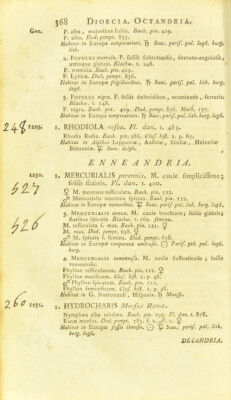 368 DIOECIA. OCTANDRIA.
Gen. P. alba, majoribus foliis. Bauh. pin. 429.
P. alba. Dod. pempt. 835.
Habitat in Europæ temperatiore. ♄ Succ. parif. pal. lugd. burg. lith.
2. POPULUS tremula. P. foliis subrotundis, dentato-angulatis,
utrinque glabris. Blackw. t. 248.
P. tremula. Bauh. pin. 429.
P. Lybica. Dod. pempt. 836.
Habitat in Europæ frigidioribus. ♄ Succ. parif. pal. lith. burg.
lugd.
3. POPULUS nigra. P. foliis deltoidibus, acuminatis, serratis.
Blackw. t. 248.
P. nigra. Bauh. pin. 429. Dod. pempt. 836. Math. 137.
Habitat in Europa temperatiore. ♄ Succ. parif. pal. lith. burg.
lugd.
248 1229. 1. RHODIOLA rosea. Fl. dan. t. 183.
Rhodia Radix. Bauh. pin. 286. Clus. hist. 2. p. 65.
Habitat in Alpibus Lapponiæ, Austriæ, Silesiæ, Helvetiæ
Britanniæ. ♃ Succ. delph.
ENNEANDRIA.
1230. 1. MERCURIALIS perennis. M. caule simplicissimo;
foliis scabris. Fl. dan. t. 400.
527 ♀ M. montana testiculata. Bauh. pin. 122.
♂ Mercurialis montana spicata. Bauh. pin. 122.
Habitat in Europæ nemoribus. ♃ Succ. parif. pal. lith. burg. lugd.
3. MERCURIALIS annua. M. caule brachiato; foliis glabris;
floribus spicatis. Blackw. t. 162. fœmina.
526 M. testiculata f. mas. Bauh. pin. 121. ♀
M. mas. Dod. pempt. 658. ♀
♂ M. spicata f. femina. Dod. pempt. 658.
Habitat in Europæ temperatæ umbrosis. ☉ Parif. ged. pal. lugd.
burg.
4. MERCURIALIS tomentosa. M. caule suffruticoso; foliis
tomentosis.
Phyllon testiculatum. Bauh. pin. 122. ♀
Phyllon marificum. Clus. hist. 2. p. 48.
♂ Phyllon spicatum. Bauh. pin. 122.
Phyllon feminificum. Clus. hist. 2. p. 48.
Habitat in G. Narbonensi, Hispania. ♄ Monsp.
260 1231. 1. HYDROCHARIS Morsus Ranæ.
Nymphæa alba minima. Bauh. pin. 193. Fl. dan. t. 878.
Ranæ morsus. Dod. pempt. 583. f. 2.
Habitat in Europæ fossis limosis. Succ. parif. pal. lith.
burg. lugd.
DECANDRIA.